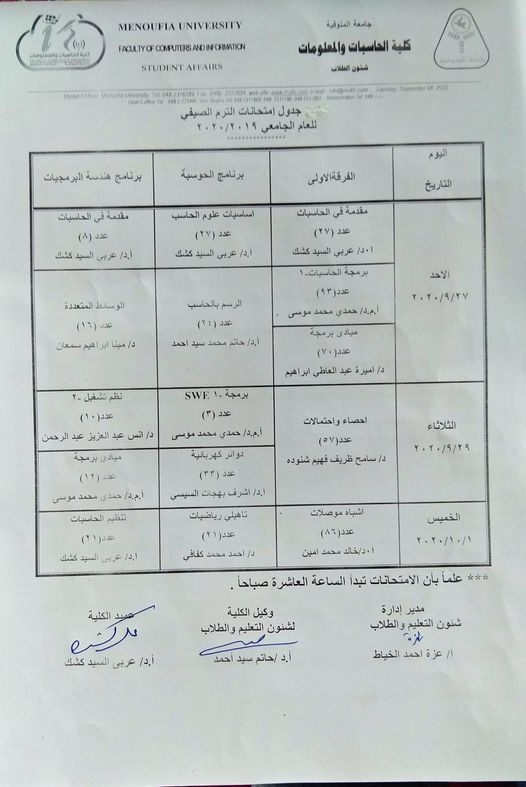 جامعة المنوفية
كلية الحاسبات والمعلومات
شئون الطلاب
MENOUFIA UNIVERSITY
FACULTY OF COMPUTERS AND INFORMATION
STUDENT AFFAIRS
جدول إمتحانات الترم الصيفي
للعام الجامعي ٢٠٢٠/٢٠١٩
اليوم
التاريخ
الفرقة الاولى
برنامج الحوسبة
برنامج هندسة البرمجيات
الاحد
٢٠٢٠/٩/٢٧
مقدمة في الحاسبات
عدد (٢٧)
ا.د/ عربى السيد كشك
اساسيات علوم الحاسب
عدد (٢٧)
أ.د/ عربى السيد كشك
مقدمة في الحاسبات
عدد (٨)
أ.د/ عربى السيد كشك
برمجة الحاسبات-١
عدد(٩٣)
أ.م.د/ حمدي محمد موسى
مبادئ برمجة
عدد(٧٠)
د/ اميرة عبد العاطي ابراهيم
الرسم بالحاسب
عدد (٢٤)
أ.د/ حاتم محمد سيد احمد
الوسائط المتعددة
عدد (١٦)
د/ مينا ابراهيم سمعان
الثلاثاء
٢٠٢٠/٩/٢٩
احصاء واحتمالات
عدد(٥٧)
د/ سامح ظريف فهيم شنوده
برمجة -١ SWE
عدد (٣)
أ.م.د/ حمدي محمد موسى
نظم تشغيل -٢
عدد(١٠)
د/ انس عبد العزيز عبد الرحمن
دوائر كهربائية
عدد (٣٣)
أ.د/ اشرف بهجات السيسي
مبادئ برمجة
عدد (١٢)
أ.م.د/ حمدي محمد موسى
الخميس
٢٠٢٠/١٠/١
اشباه موصلات
عدد(٨٦)
ا.د/خالد محمد امين
تأهيلي رياضيات
عدد(٢١)
د/ احمد محمد كفافي
تنظيم الحاسبات
عدد(٢١)
أ.د/ عربى السيد كشك
*** علماً بأن الامتحانات تبدأ الساعة العاشرة صباحاً .
مدير إدارة
شئون التعليم والطلاب
أ/ عزة احمد الخياط
وكيل الكلية
لشئون التعليم والطلاب
أ.د /حاتم سيد أحمد
عميد الكلية
أ.د/ عربى السيد كشك